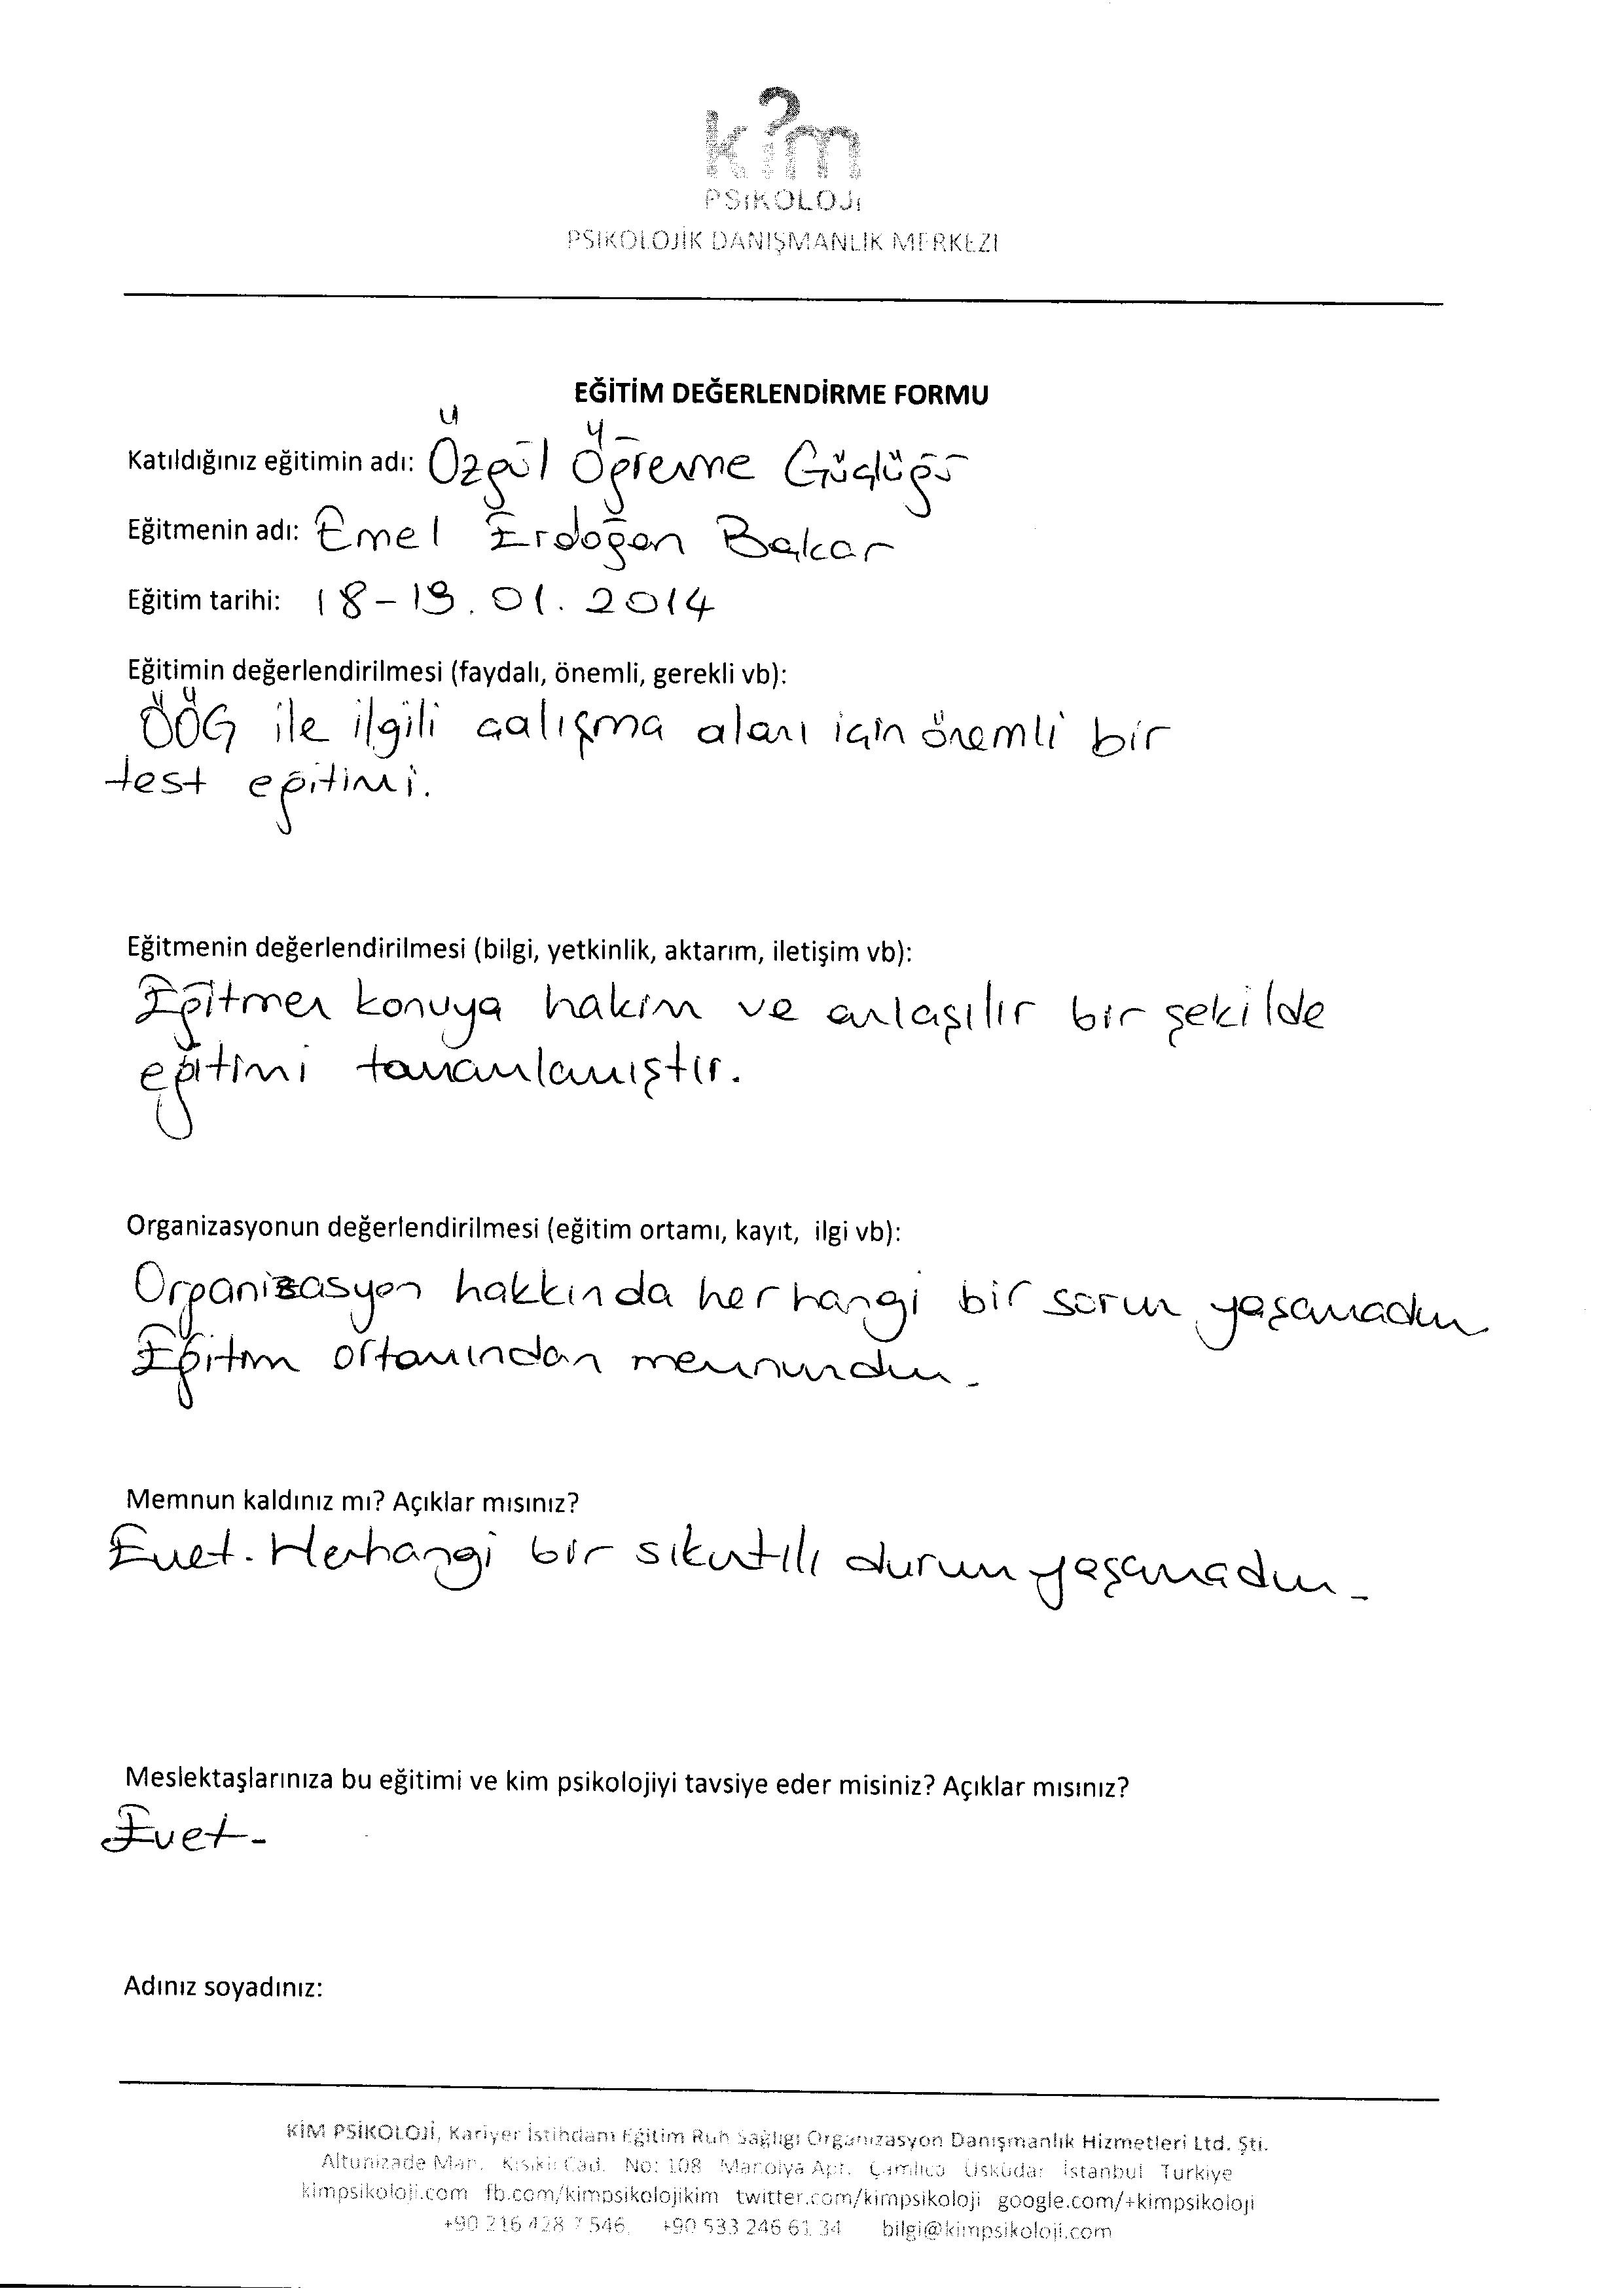 k?m
PSİKOLOJİ
PSİKOLOJİK DANIŞMANLIK MERKEZİ
EĞİTİM DEĞERLENDİRME FORMU
Katıldığınız eğitimin adı: Özgül Öğrenme Güçlüğü
Eğitmenin adı: Emel Erdoğan Bakar
Eğitim tarihi: 18-19.01.2014
Eğitimin değerlendirilmesi (faydalı, önemli, gerekli vb):
ÖÖG ile ilgili çalışma alanı için önemli bir
test eğitimi.
Eğitmenin değerlendirilmesi (bilgi, yetkinlik, aktarım, iletişim vb):
Eğitmen konuya hakim ve anlaşılır bir şekilde
eğitimi tamamlamıştır.
Organizasyonun değerlendirilmesi (eğitim ortamı, kayıt, ilgi vb):
Organizasyon hakkında herhangi bir sorun yaşamadım
Eğitim ortamından memnundum.
Memnun kaldınız mı? Açıklar mısınız?
Evet. Herhangi bir sıkıntılı durum yaşamadım.
Meslektaşlarınıza bu eğitimi ve kim psikolojiyi tavsiye eder misiniz? Açıklar mısınız?
Evet.
Adınız soyadınız:
KİM PSİKOLOJİ, Kariyer İstihdam Eğitim Ruh Sağlığı Organizasyon Danışmanlık Hizmetleri Ltd. Şti.
Altunizade Mah. Kısıklı Cad. No: 108 Manolya Apt. Çamlıca Üsküdar İstanbul Türkiye
kimpsikoloji.com fb.com/kimpsikolojikim twitter.com/kimpsikoloji google.com/+kimpsikoloji
+90 216 428 7 546, +90 533 246 61 34 bilgi@kimpsikoloji.com